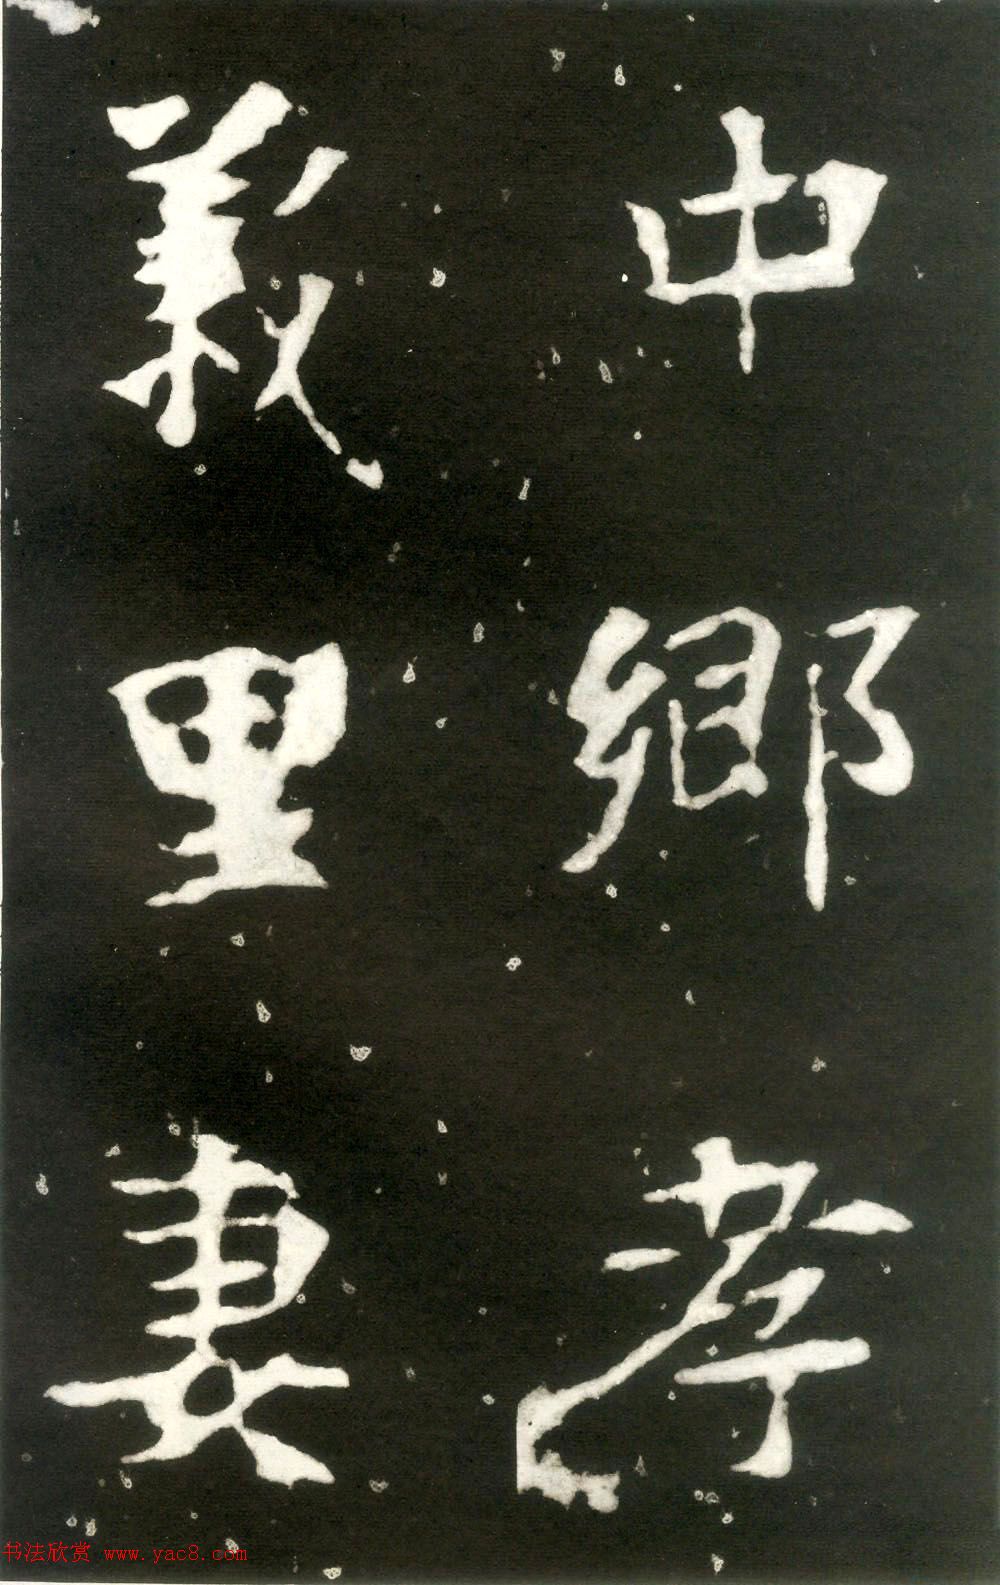 中鄉孝
義里妻
书法欣赏 www.yac8.com